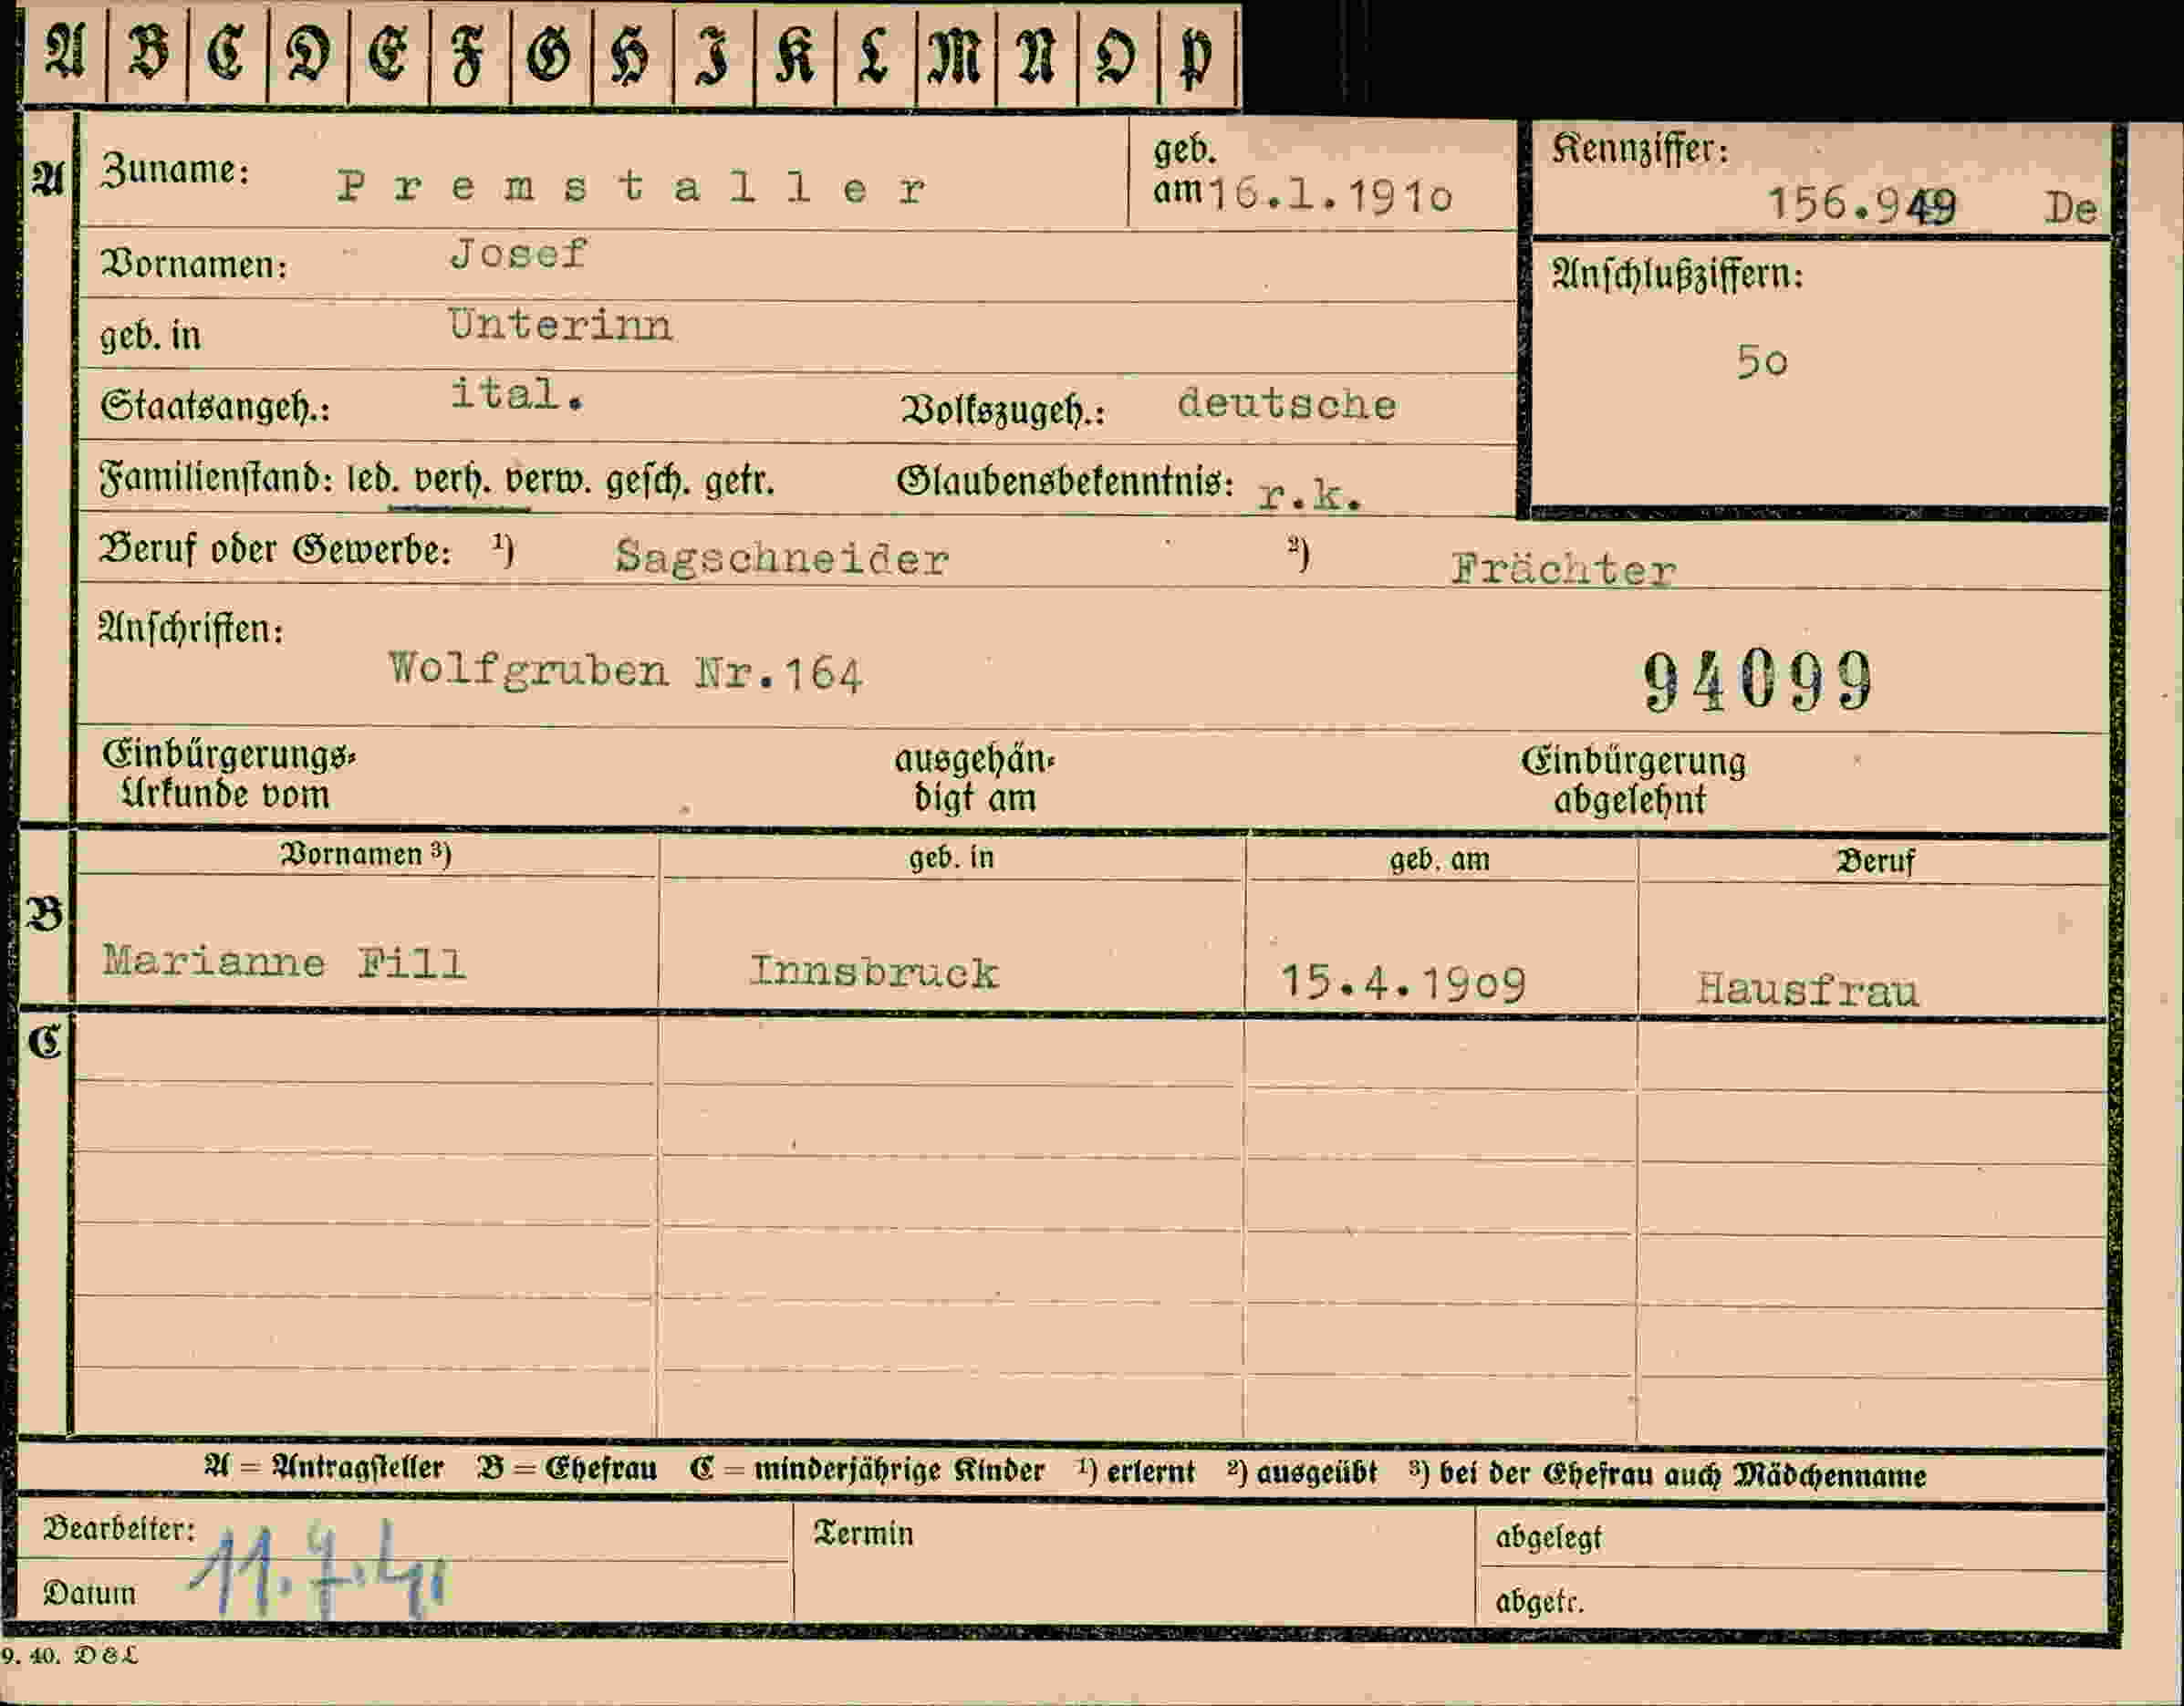 A B C D E F G H I K L M N O P
A Zuname: Premstaller geb. am 16.1.1910 Kennziffer: 156.949 De
Vornamen: Josef
Anschlußziffern: 50
geb. in Unterinn
Staatsangeh.: ital. Volkszugeh.: deutsche
Familienstand: led. verh. verw. gesch. getr. Glaubensbekenntnis: r.k.
Beruf oder Gewerbe: 1) Sagschneider 2) Frächter
Anschriften: Wolfgruben Nr.164 94099
Einbürgerungs-Urkunde vom ausgehän-digt am Einbürgerung abgelehnt
Vornamen 3) geb. in geb. am Beruf
B Marianne Fill Innsbruck 15.4.1909 Hausfrau
C
A = Antragsteller B = Ehefrau C = minderjährige Kinder 1) erlernt 2) ausgeübt 3) bei der Ehefrau auch Mädchenname
Bearbeiter: Termin abgelegt
Datum 11.7.41 abgetr.
9. 40. D & L